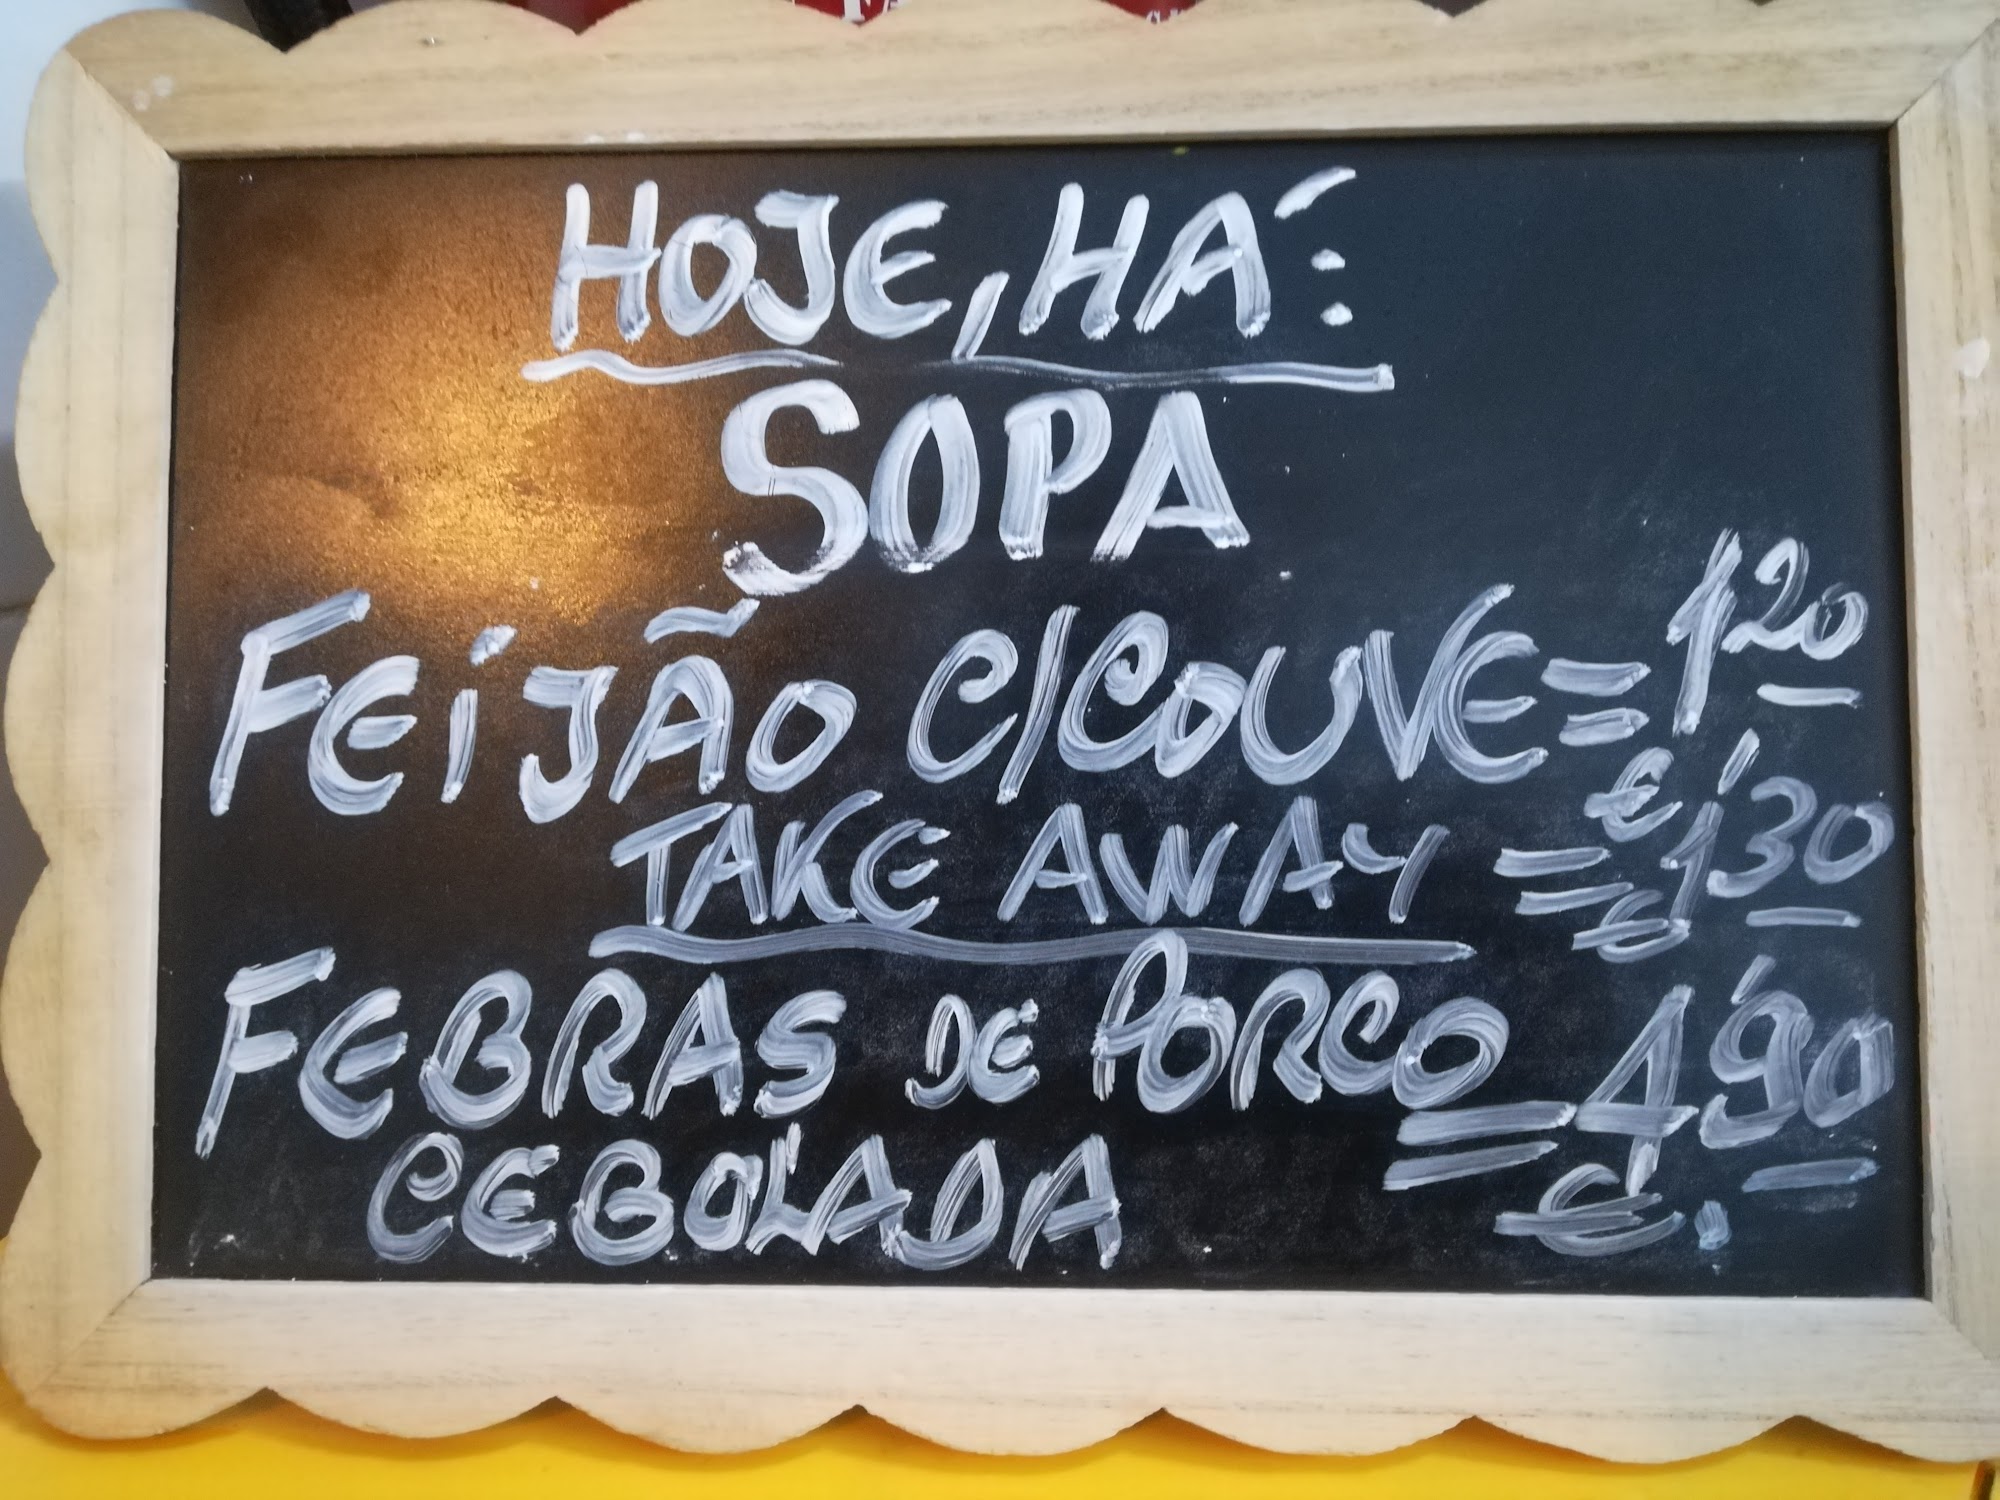 HOJE, HÁ:
SOPA
FEIJÃO C/COUVE = 1,20 €
TAKE AWAY = 1,30 €
FEBRAS DE PORCO = 4,90 €.
CEBOLADA